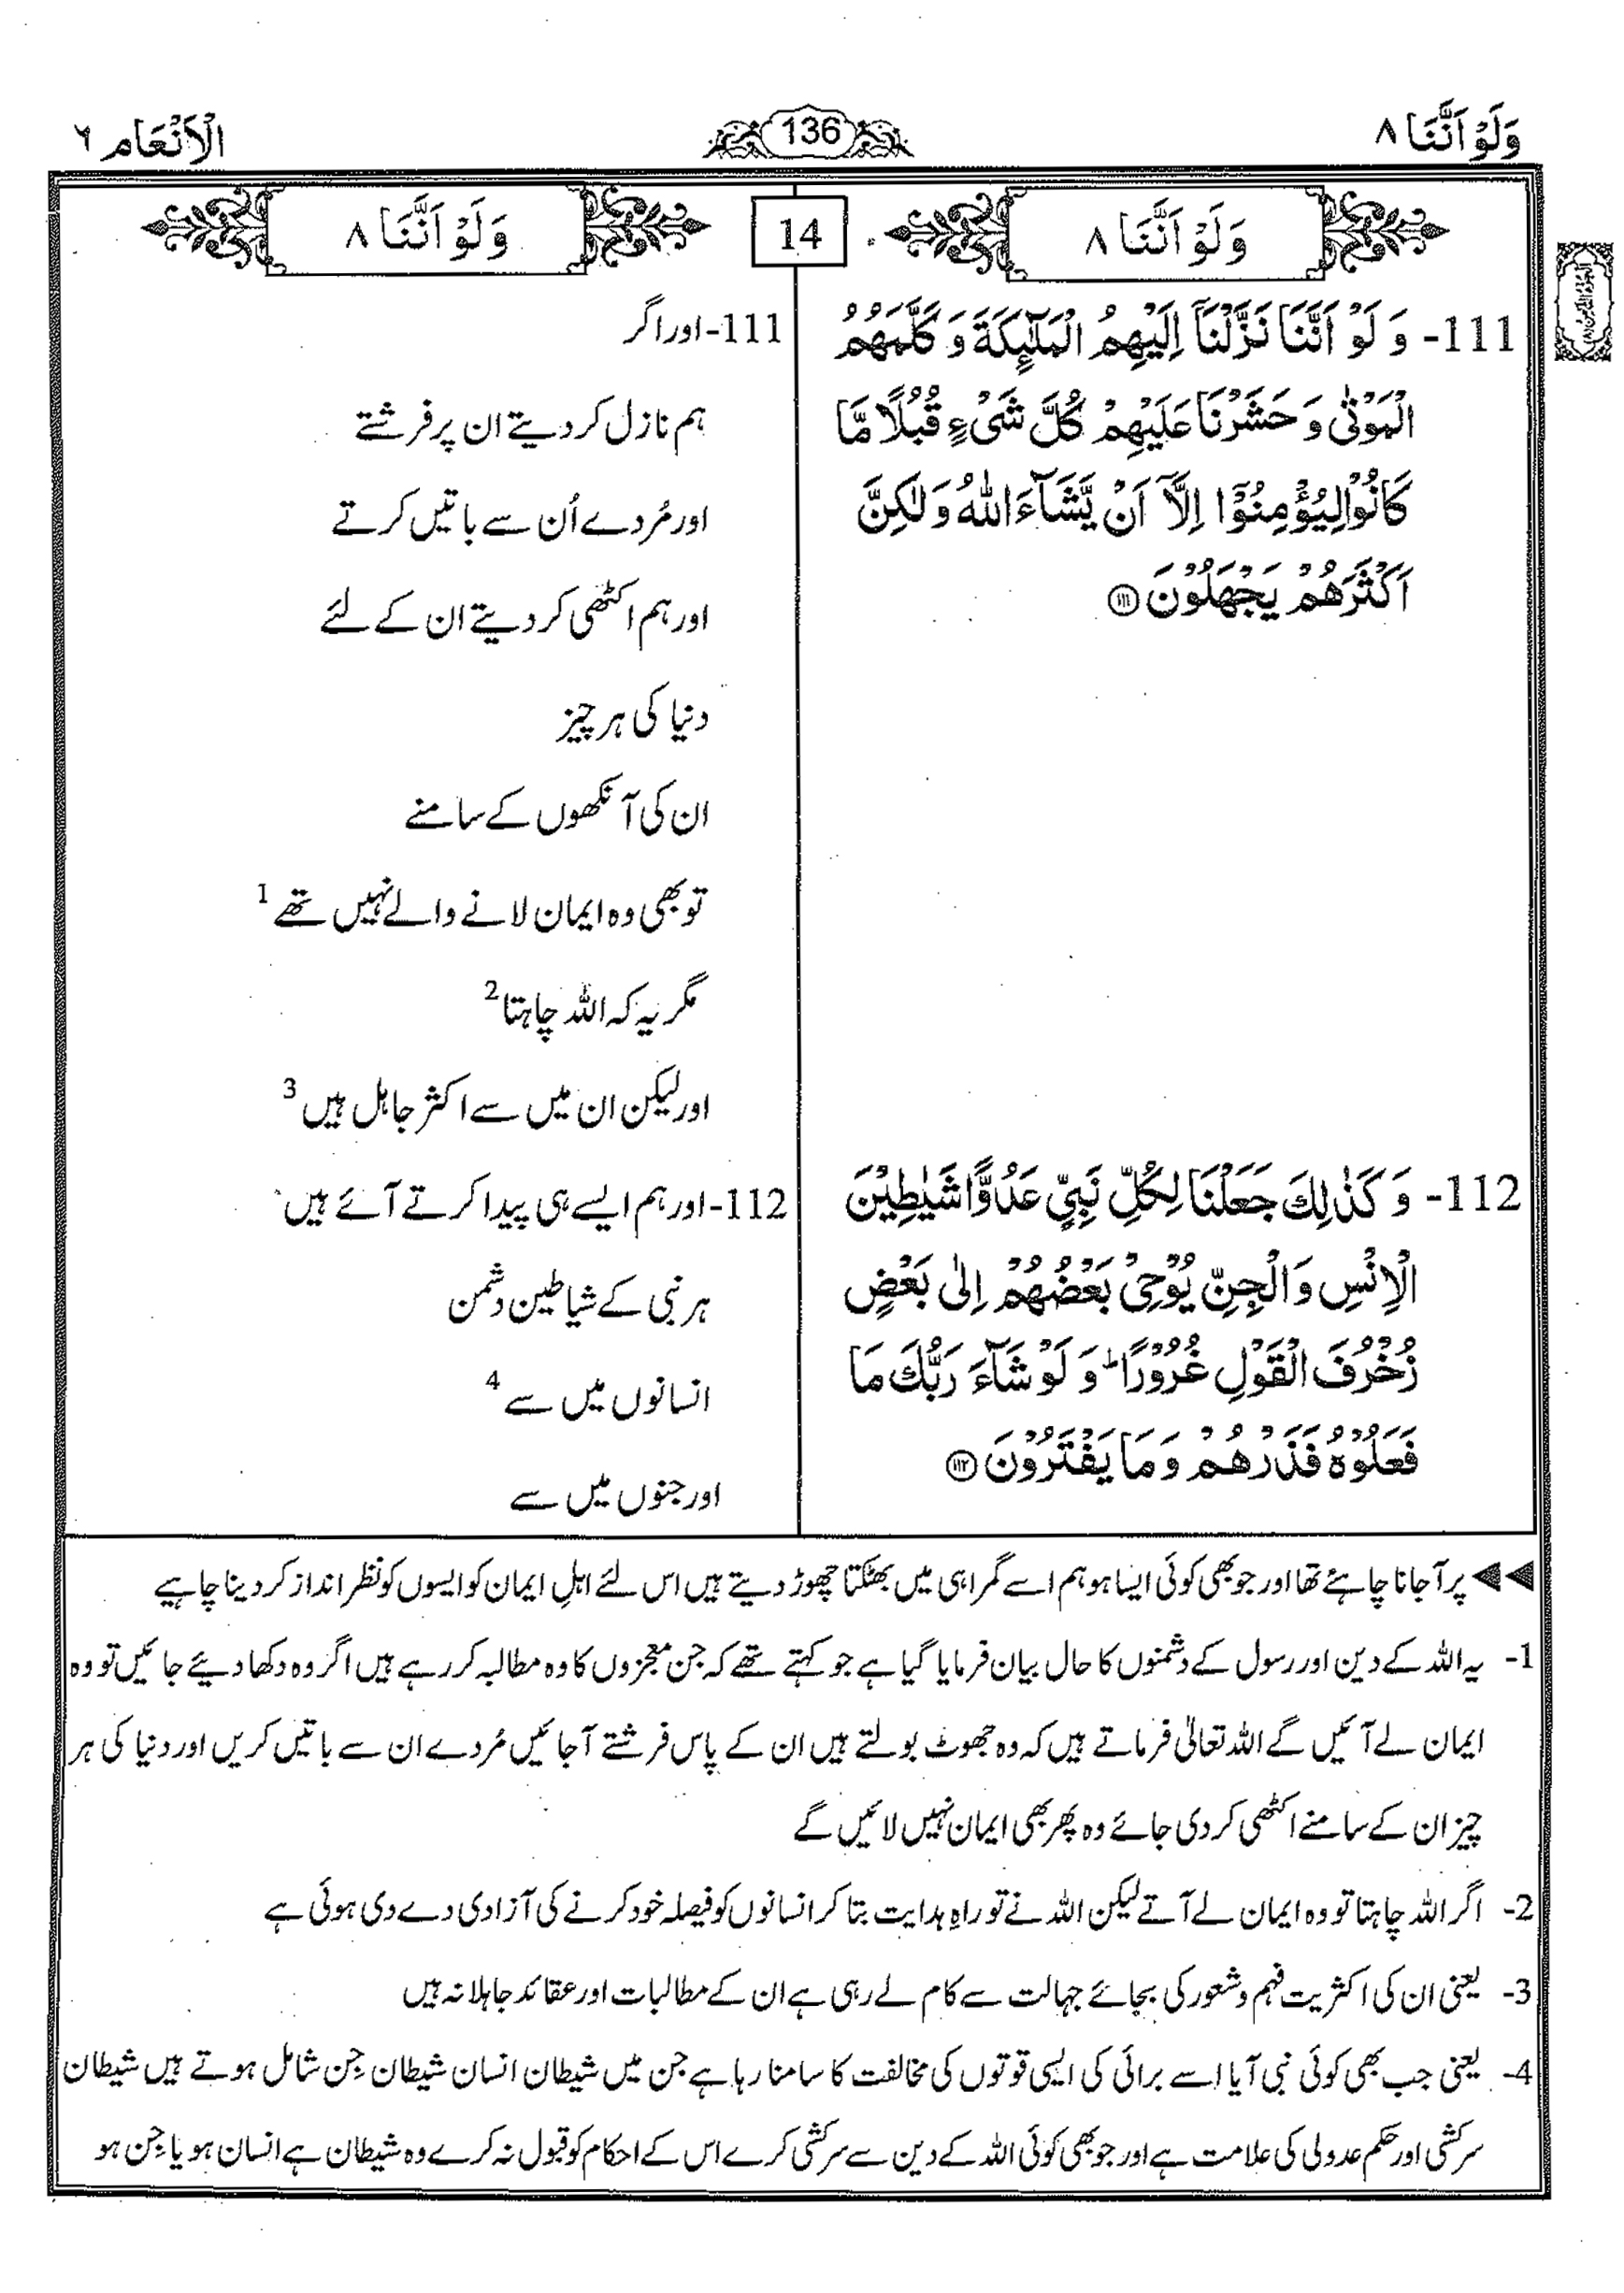 وَلَوْ اَنَّنَا ٨
136
الْاَنْعَام ٦
وَلَوْ اَنَّنَا ٨
14
وَلَوْ اَنَّنَا ٨
111- وَ لَوْ اَنَّنَا نَزَّلْنَاۤ اِلَیْهِمُ الْمَلٰٓىِٕكَةَ وَ كَلَّمَهُمُ
الْمَوْتٰى وَ حَشَرْنَا عَلَیْهِمْ كُلَّ شَیْءٍ قُبُلًا مَّا
كَانُوْا لِیُؤْمِنُوْۤا اِلَّاۤ اَنْ یَّشَآءَ اللّٰهُ وَ لٰكِنَّ
اَكْثَرَهُمْ یَجْهَلُوْنَ ﴿١١١﴾
111- اور اگر
ہم نازل کر دیتے ان پر فرشتے
اور مُردے اُن سے باتیں کرتے
اور ہم اکٹھی کر دیتے ان کے لئے
دنیا کی ہر چیز
ان کی آنکھوں کے سامنے
تو بھی وہ ایمان لانے والے نہیں تھے 1
مگر یہ کہ اللہ چاہتا 2
اور لیکن ان میں سے اکثر جاہل ہیں 3
112- وَ كَذٰلِكَ جَعَلْنَا لِكُلِّ نَبِیٍّ عَدُوًّا شَیٰطِیْنَ
الْاِنْسِ وَ الْجِنِّ یُوْحِیْ بَعْضُهُمْ اِلٰى بَعْضٍ
زُخْرُفَ الْقَوْلِ غُرُوْرًا ؕ وَ لَوْ شَآءَ رَبُّكَ مَا
فَعَلُوْهُ فَذَرْهُمْ وَ مَا یَفْتَرُوْنَ ﴿١١٢﴾
112- اور ہم ایسے ہی پیدا کرتے آئے ہیں
ہر نبی کے شیاطین دشمن
انسانوں میں سے 4
اور جنوں میں سے
پر آجانا چاہئے تھا اور جو بھی کوئی ایسا ہو ہم اسے گمراہی میں بھٹکتا چھوڑ دیتے ہیں اس لئے اہلِ ایمان کو ایسوں کو نظر انداز کر دینا چاہیے
1- یہ اللہ کے دین اور رسول کے دشمنوں کا حال بیان فرمایا گیا ہے جو کہتے تھے کہ جن معجزوں کا وہ مطالبہ کر رہے ہیں اگر وہ دکھا دیئے جائیں تو وہ
ایمان لے آئیں گے اللہ تعالیٰ فرماتے ہیں کہ وہ جھوٹ بولتے ہیں ان کے پاس فرشتے آجائیں مُردے ان سے باتیں کریں اور دنیا کی ہر
چیز ان کے سامنے اکٹھی کر دی جائے وہ پھر بھی ایمان نہیں لائیں گے
2- اگر اللہ چاہتا تو وہ ایمان لے آتے لیکن اللہ نے تو راہِ ہدایت بتا کر انسانوں کو فیصلہ خود کرنے کی آزادی دے دی ہوئی ہے
3- یعنی ان کی اکثریت فہم و شعور کی بجائے جہالت سے کام لے رہی ہے ان کے مطالبات اور عقائد جاہلانہ ہیں
4- یعنی جب بھی کوئی نبی آیا اسے برائی کی ایسی قوتوں کی مخالفت کا سامنا رہا ہے جن میں شیطان انسان شیطان جِن شامل ہوتے ہیں شیطان
سرکشی اور حکم عدولی کی علامت ہے اور جو بھی کوئی اللہ کے دین سے سرکشی کرے اس کے احکام کو قبول نہ کرے وہ شیطان ہے انسان ہو یا جِن ہو